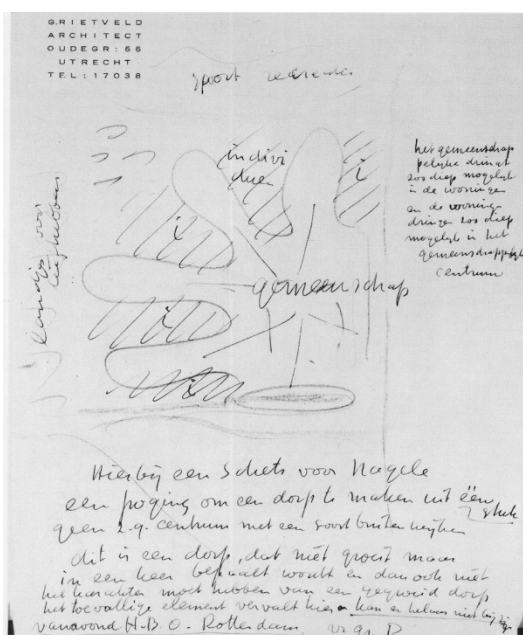 G. RIETVELD
ARCHITECT
OUDEGR: 55
UTRECHT
TEL: 17038
sport
indivi
duen
i
het gemeenschap
pelijke dringt
zoo diep mogelijk
in de woningen
en de woning-
dringen zoo diep
mogelijk in het
gemeenschappelijk
centrum
voor
gemeenschap
i
i
i
Hierbij een schets voor Nagele
een poging om een dorp te maken uit één
stuk
geen z.g. centrum met een soort buitenwijken
dit is een dorp, dat niet groeit maar
in een keer bepaalt wordt en dan ook niet
het karakter moet hebben van een gegroeid dorp
het toevallige element vervalt hier en kan er helaas niet bij zijn
vanavond H.B.O. Rotterdam